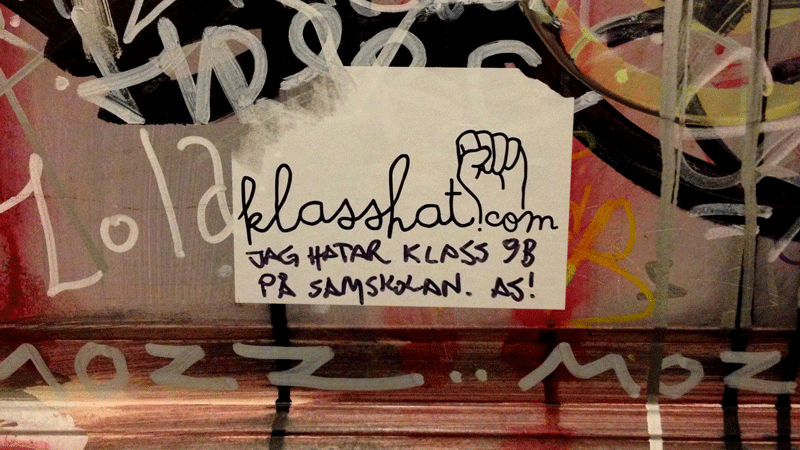 Lola
klasshat.com
JAG HATAR KLASS 9B
PÅ SAMSKOLAN. AS!
MOZZ..MOZ